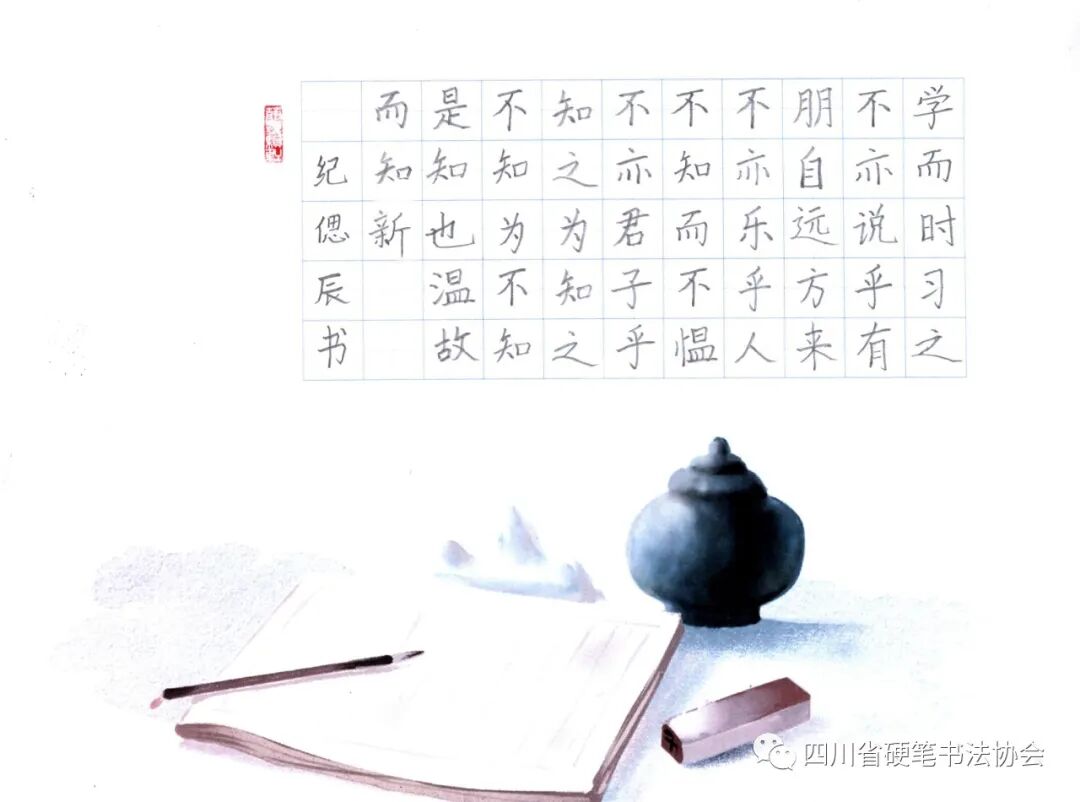 学而时习之
不亦说乎有
朋自远方来
不亦乐乎人
不知而不愠
不亦君子乎
知之为知之
不知为不知
是知也温故
而知新
纪偲辰书
四川省硬笔书法协会